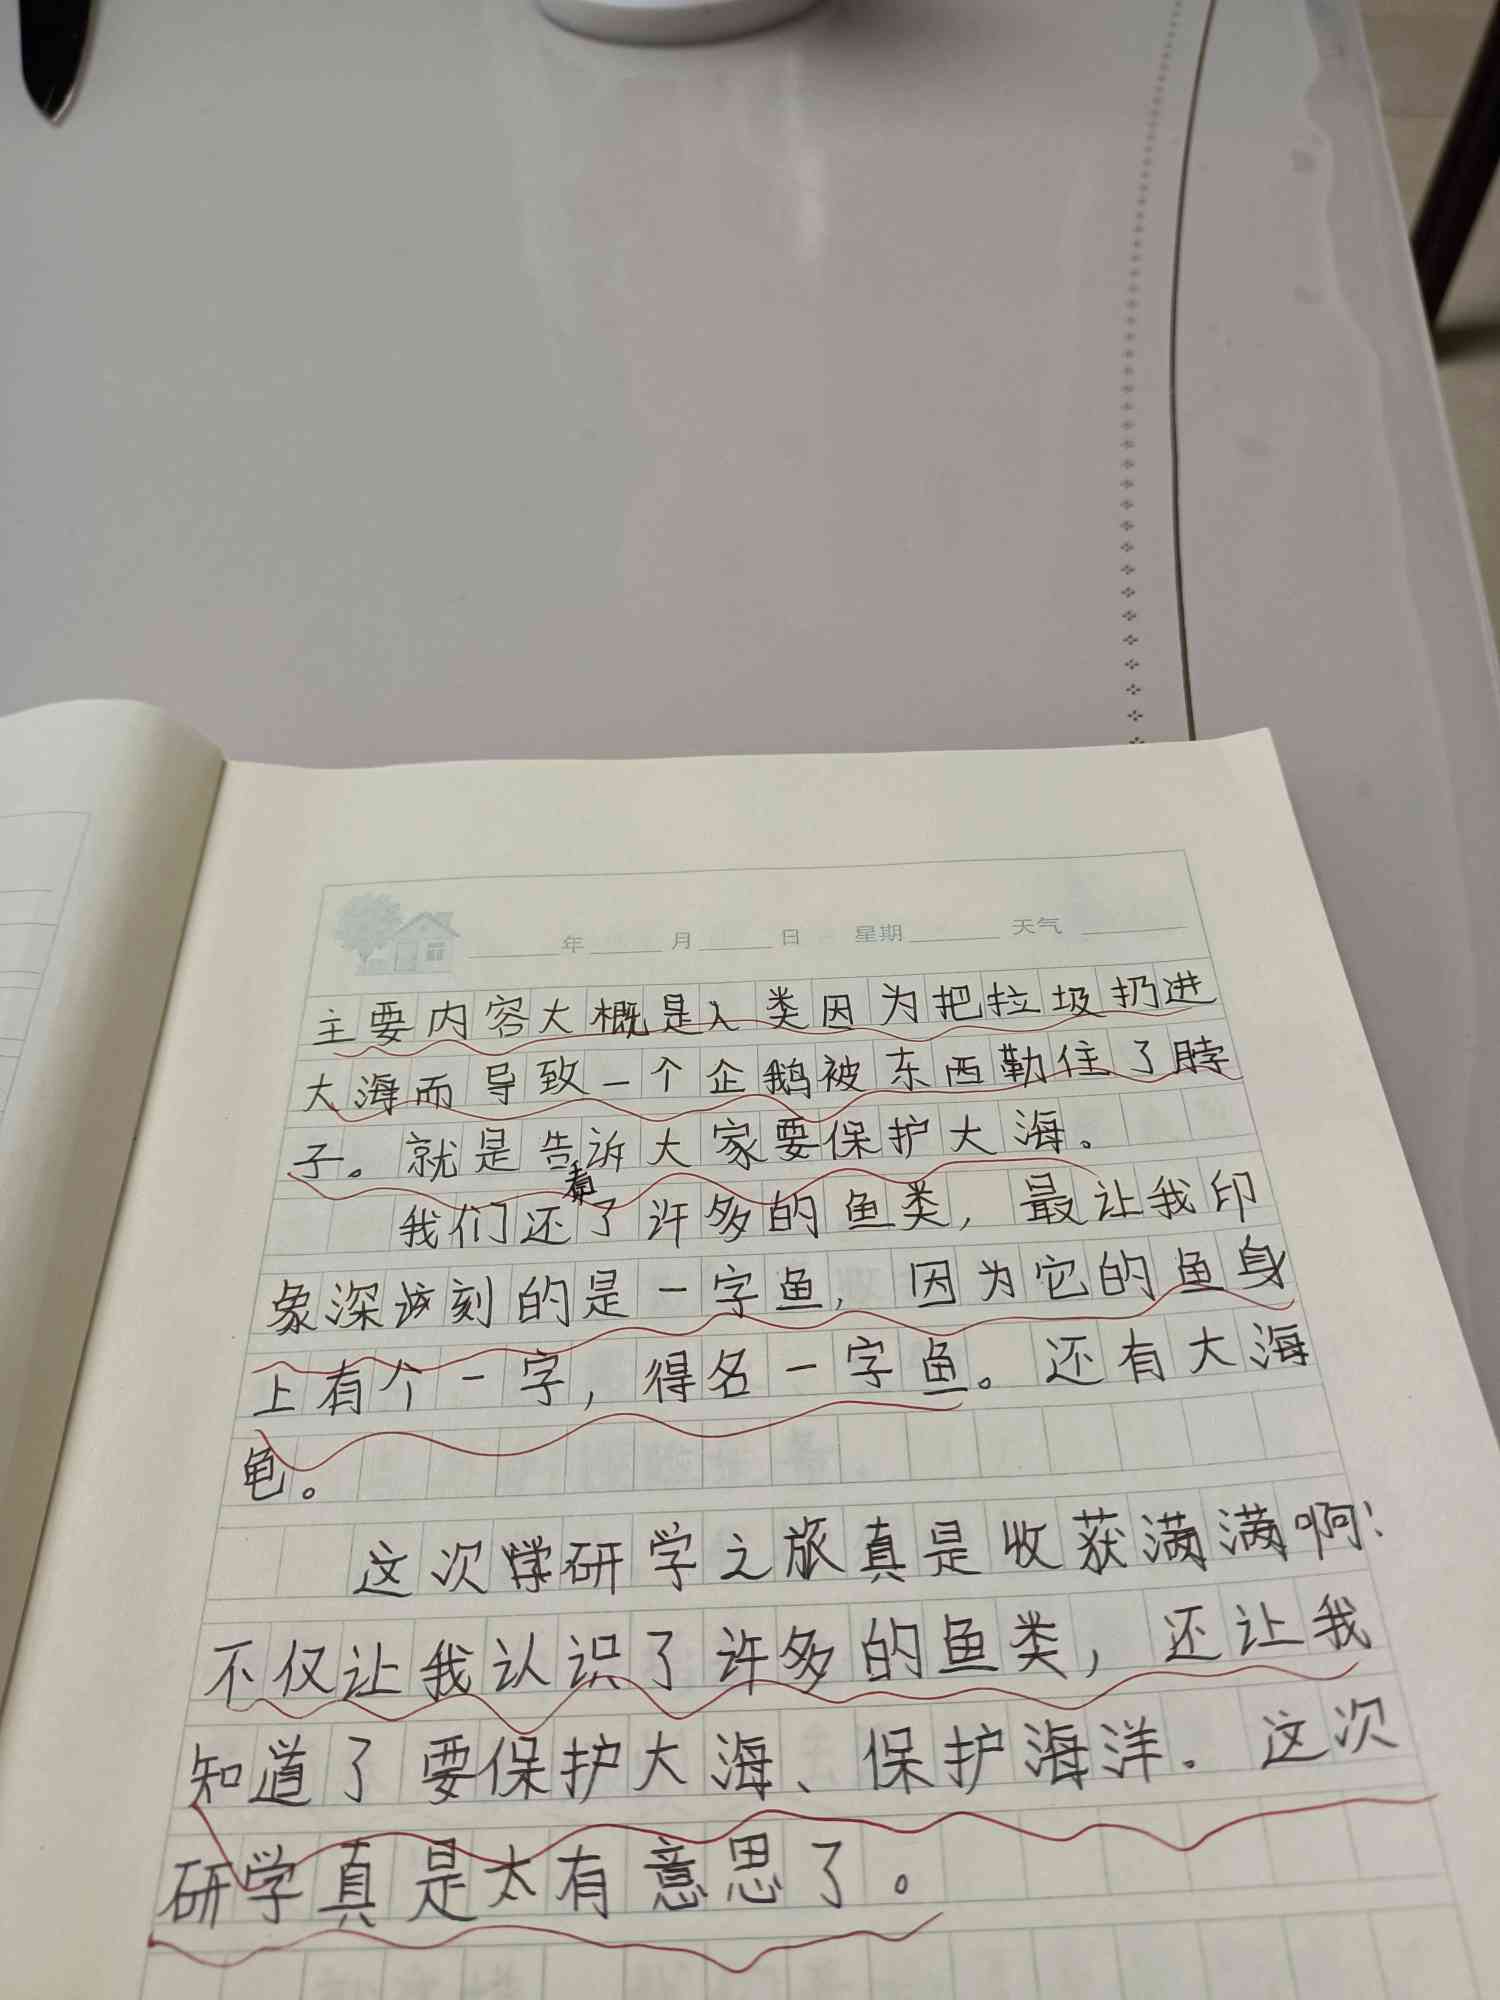 年 月 日 星期 天气
主要内容大概是人类因为把垃圾扔进
大海而导致一个企鹅被东西勒住了脖
子。就是告诉大家要保护大海。
我们还看了许多的鱼类，最让我印
象深刻的是一字鱼，因为它的鱼身
上有个一字，得名一字鱼。还有大海
龟。
这次研学之旅真是收获满满啊！
不仅让我认识了许多的鱼类，还让我
知道了要保护大海、保护海洋。这次
研学真是太有意思了。